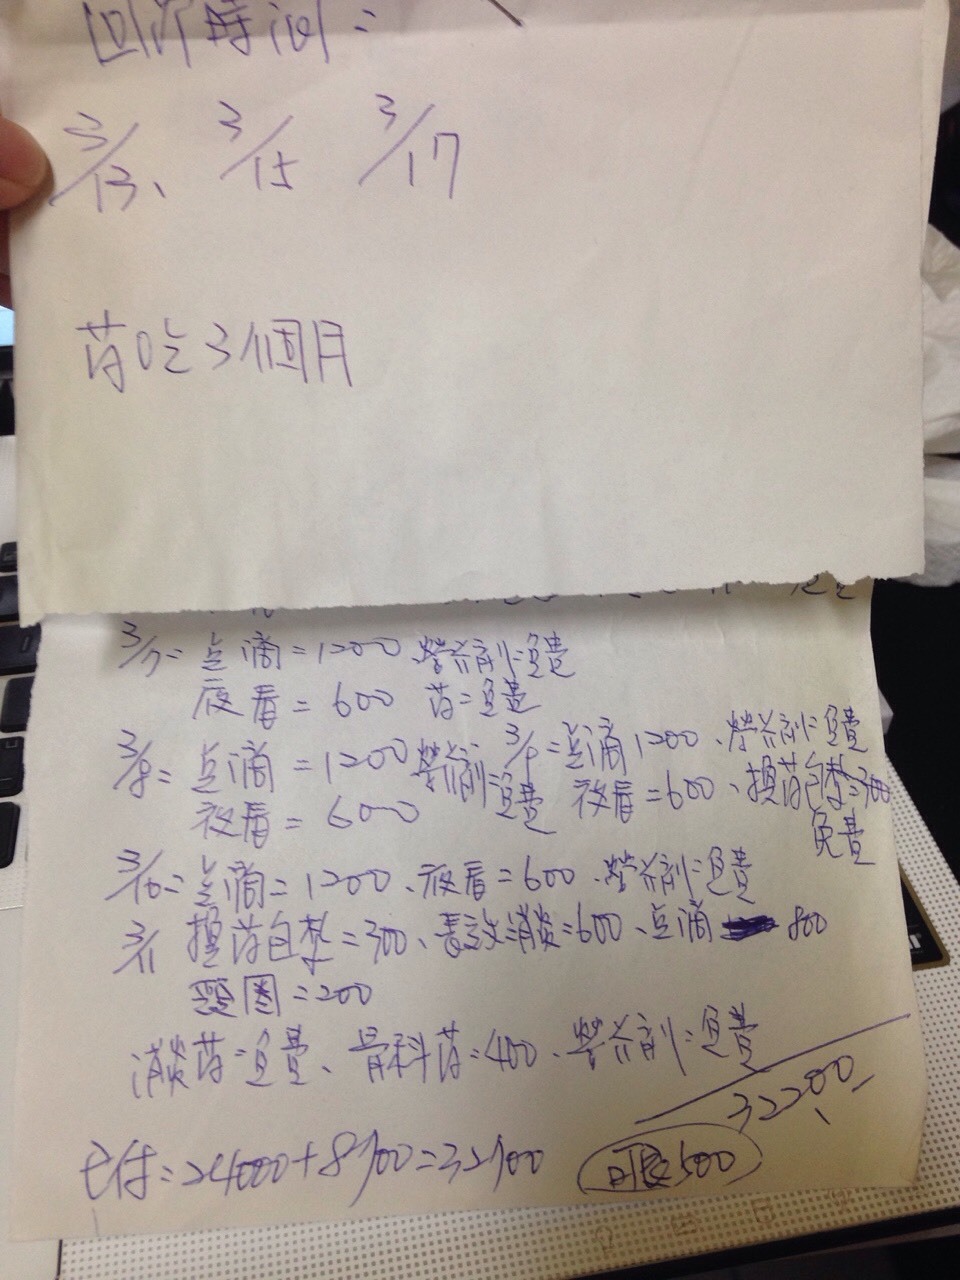 回診時间:
3/13、 3/15 3/17
药吃3個月
3/7= 点滴=1200、營养劑=免費
夜看=600 药=免費
3/8= 点滴=1200 營养劑=免費
夜看=600
3/9=点滴1200、營养劑=免費
夜看=600、換药包紮=300
免費
3/10=点滴=1200、夜看=600、營养劑=免費
3/11 換药包紮=300、消炎=600、点滴 800
頸圈=200
消炎药=免費、骨科药=400、營养劑=免費
32200
已付=24000+8700=32700 可退500